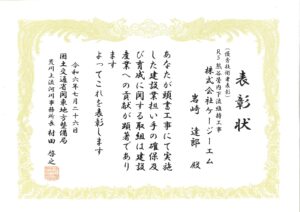 表彰状
(優良技術者表彰)
R5熊谷管内下流維持工事
株式会社ケージーエム
岩崎 達郎 殿
あなたが頭書工事にて実施
した建設業担い手の確保及
び育成に関する取組は建設
産業への貢献が顕著であり
ます
よってこれを表彰します
令和六年七月二十六日
国土交通省関東地方整備局
荒川上流河川事務所長 村田 啓之